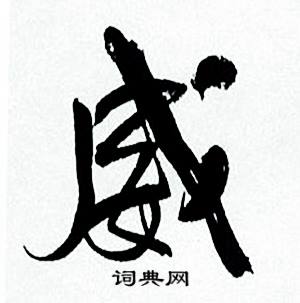 威
词典网